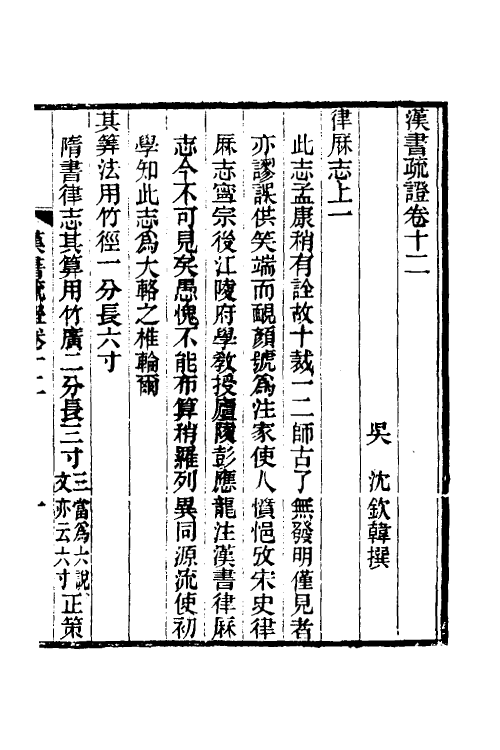 漢書疏證卷十二
吳 沈欽韓撰
律厤志上一
此志孟康稍有詮故十裁一二師古了無發明僅見者
亦謬誤供笑端而靦顏號爲注家使人憤悒攷宋史律
厤志寧宗後江陵府學敎授廬陵彭應龍注漢書律厤
志今不可見矣愚愧不能布算稍羅列異同源流使初
學知此志爲大輅之椎輪爾
其算法用竹徑一分長六寸
隋書律志其算用竹廣二分長三寸三當爲六說文亦云六寸正策
漢書疏證卷十二 一